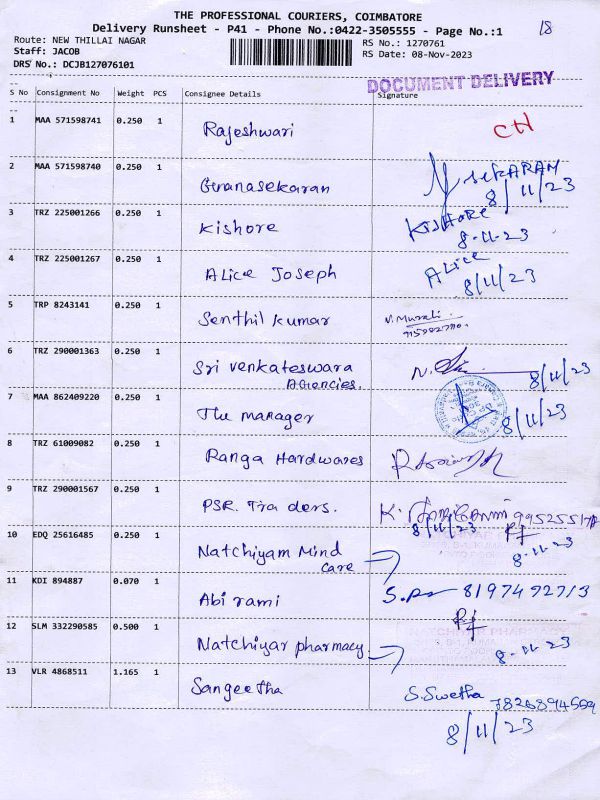 THE PROFESSIONAL COURIERS, COIMBATORE
18
Delivery Runsheet - P41 - Phone No.:0422-3505555 - Page No.:1
Route: NEW THILLAI NAGAR
RS No.: 1270761
Staff: JACOB
RS Date: 08-Nov-2023
DRS No.: DCJB127076101
DOCUMENT DELIVERY
S No Consignment No Weight PCS Consignee Details Signature
1 MAA 571598741 0.250 1 Rajeshwari CH
2 MAA 571598740 0.250 1 Gunanasekaran SEKARAM
8/11/23
3 TRZ 225001266 0.250 1 Kishore KISHORE
8-11-23
4 TRZ 225001267 0.250 1 Alice Joseph Alice
8/11/23
5 TRP 8243141 0.250 1 Senthil kumar V. Murali
6 TRZ 290001363 0.250 1 Sri Venkateswara
Agencies. N. 8/11/23
7 MAA 862409220 0.250 1 The manager 8/11/23
8 TRZ 61009082 0.250 1 Ranga Hardwares
9 TRZ 290001567 0.250 1 PSR. Traders. K.
8/11/23
10 EDQ 25616485 0.250 1 Natchiyam Mind
care 8-11-23
11 KDI 894887 0.070 1 Abi rami
12 SLM 332290585 0.500 1 Natchiyar pharmacy
8-11-23
13 VLR 4868511 1.165 1 Sangeetha S. Swetha
8/11/23